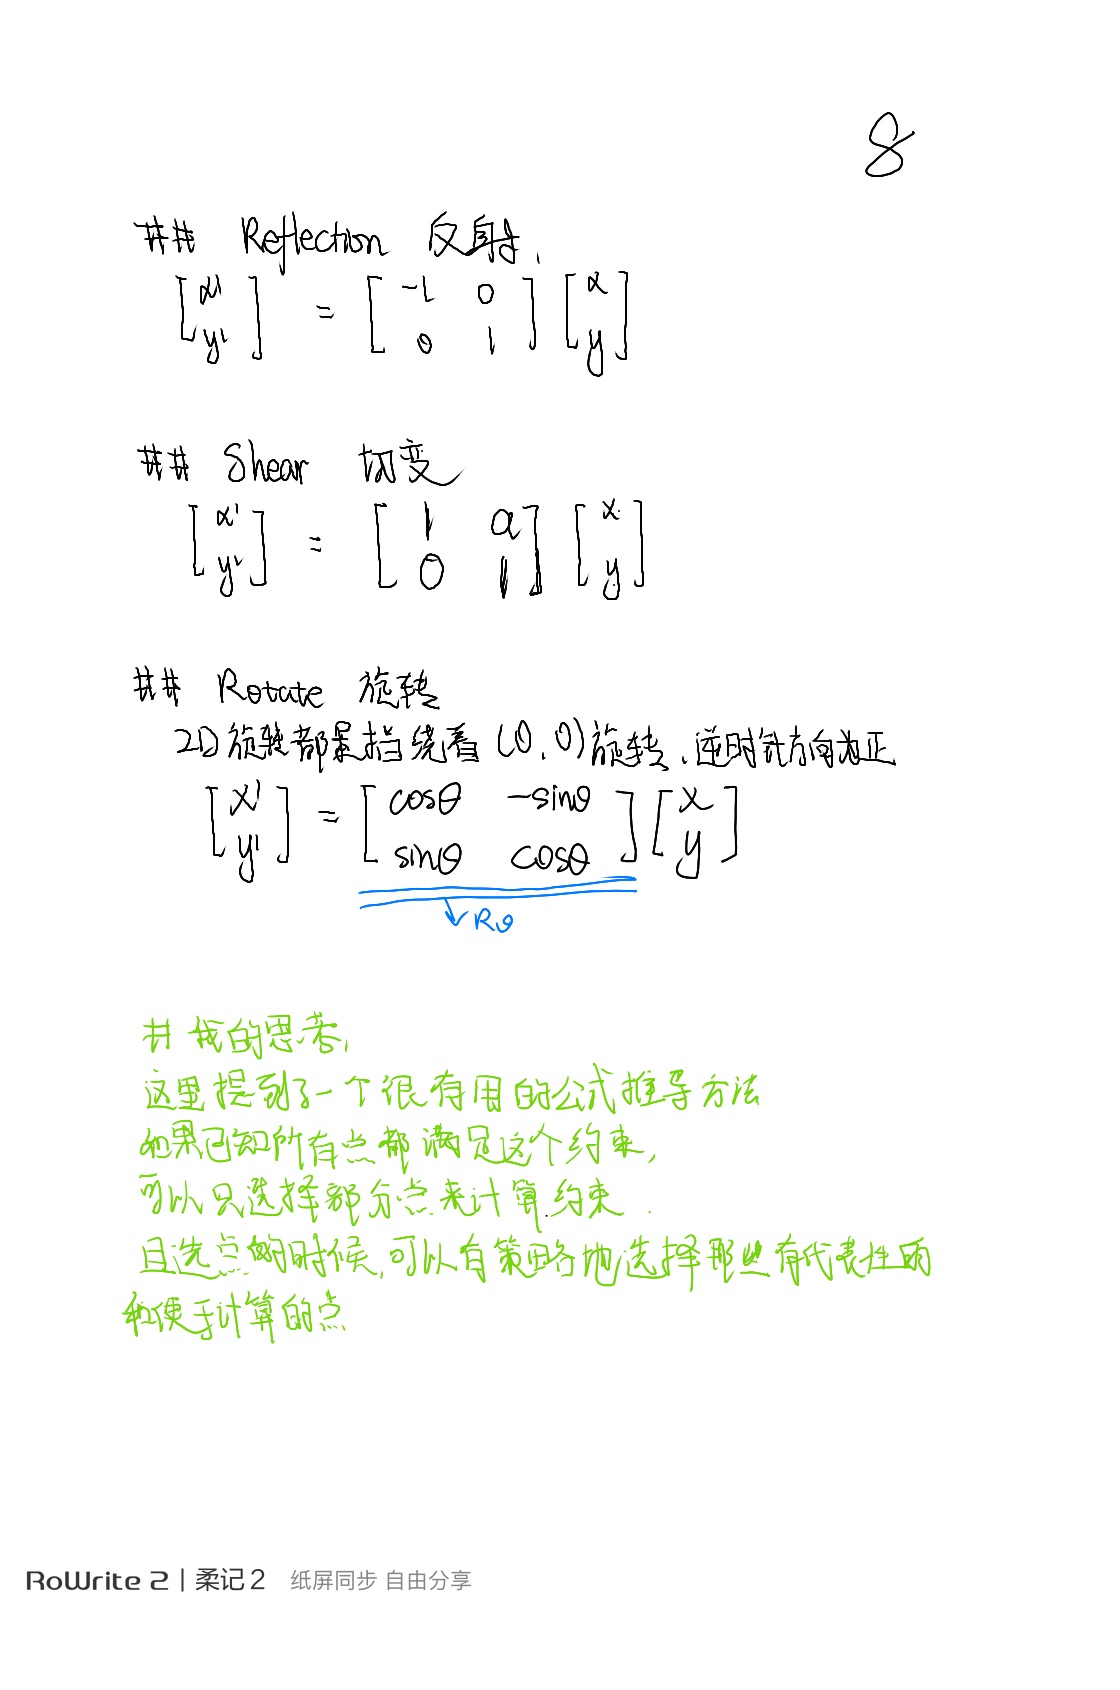 8
## Reflection 反射.
[x' y'] = [-1 0 0 1] [x y]
## Shear 切变
[x' y'] = [1 a 0 1] [x y]
## Rotate 旋转
2D旋转都是指绕着(0,0)旋转,逆时针方向为正
[x' y'] = [cosθ -sinθ sinθ cosθ] [x y]
Rθ
# 我的思考,
这里提到了一个很有用的公式推导方法
如果已知所有点都满足这个约束,
可以只选择部分点来计算约束.
且选点的时候,可以有策略地选择那些有代表性的
和便于计算的点
RoWrite 2 | 柔记 2 纸屏同步 自由分享